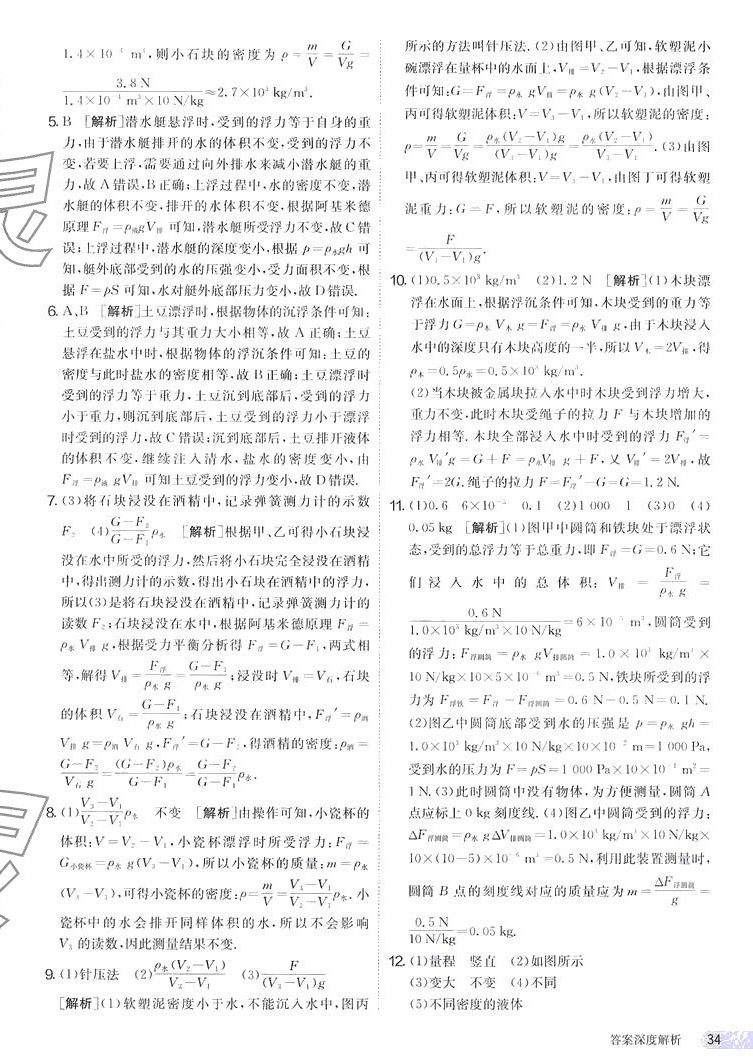 1.4×10⁻⁴ m³,则小石块的密度为 ρ=m/V=G/Vg=
3.8 N/(1.4×10⁻⁴ m³×10 N/kg)≈2.7×10³ kg/m³.
5. B [解析]潜水艇悬浮时,受到的浮力等于自身的重
力,由于潜水艇排开的水的体积不变,受到的浮力不
变,若要上浮,需要通过向外排水来减小潜水艇的重
力,故 A 错误,B 正确;上浮过程中,水的密度不变,潜
水艇的体积不变,排开的水体积不变,根据阿基米德
原理F浮=ρ液gV排 可知,潜水艇所受浮力不变,故C错
误;上浮过程中,潜水艇的深度变小,根据 p=ρ水gh 可
知,艇外底部受到的水的压强变小,受力面积不变,根
据 F=pS 可知,水对艇外底部压力变小,故 D 错误.
6. A、B [解析]土豆漂浮时,根据物体的沉浮条件可知:
土豆受到的浮力与其重力大小相等,故 A 正确;土豆
悬浮在盐水中时,根据物体的浮沉条件可知:土豆的
密度与此时盐水的密度相等,故 B 正确;土豆漂浮时
受到的浮力等于重力,土豆沉到底部后,受到的浮力
小于重力,则沉到底部后,土豆受到的浮力小于漂浮
时受到的浮力,故 C 错误;沉到底部后,土豆排开液体
的体积不变,继续注入清水,盐水的密度变小,由
F浮=ρ液 gV排 可知土豆受到的浮力变小,故 D 错误.
7. (3)将石块浸没在酒精中,记录弹簧测力计的示数
F₂ (4)(G-F₂)/(G-F₁)ρ水 [解析]根据甲、乙可得小石块浸
没在水中所受的浮力,然后将小石块完全浸没在酒精
中,得出测力计的示数,得出小石块在酒精中的浮力,
所以(3)是将石块浸没在酒精中,记录弹簧测力计的
读数 F₂;石块浸没在水中,根据阿基米德原理 F浮=
ρ水 V排 g,根据受力平衡分析得 F浮=G-F₁,两式相
等,解得 V排=F浮/(ρ水 g)=(G-F₁)/(ρ水 g);浸没时 V排=V石,石块
的体积 V石=(G-F₁)/(ρ水 g);石块浸没在酒精中,F浮′=ρ酒
V排 g=ρ酒 V石 g,F浮′=G-F₂,得酒精的密度:ρ酒=
(G-F₂)/(V石 g)=(G-F₂)ρ水/(G-F₁)=(G-F₂)/(G-F₁)ρ水.
8. (1)(V₃-V₁)/(V₂-V₁)ρ水 不变 [解析]由操作可知,小瓷杯的
体积:V=V₂-V₁,小瓷杯漂浮时所受浮力:F浮=
G小瓷杯=ρ水 g(V₃-V₁),所以小瓷杯的质量:m=ρ水
(V₃-V₁),可得小瓷杯的密度:ρ=m/V=(V₃-V₁)/(V₂-V₁)ρ水. 小
瓷杯中的水会排开同样体积的水,所以不会影响
V₃ 的读数,因此测量结果不变.
9. (1)针压法 (2)ρ水(V₂-V₁)/(V₃-V₁) (3)F/((V₃-V₁)g)
[解析](1)软塑泥密度小于水,不能沉入水中,图丙
所示的方法叫针压法.(2)由图甲、乙可知,软塑泥小
碗漂浮在量杯中的水面上,V排=V₂-V₁,根据漂浮条
件可知:G=F浮=ρ水 gV排=ρ水 g(V₂-V₁),由图甲、
丙可得软塑泥体积:V=V₃-V₁,所以软塑泥的密度:
ρ=m/V=G/Vg=ρ水(V₂-V₁)g/((V₃-V₁)g)=ρ水(V₂-V₁)/(V₃-V₁).(3)由图
甲、丙可得软塑泥体积:V=V₃-V₁,由图丁可得软塑
泥重力:G=F,所以软塑泥的密度:ρ=m/V=G/Vg
=F/((V₃-V₁)g).
10. (1)0.5×10³ kg/m³ (2)1.2 N [解析](1)木块漂
浮在水面上,根据浮沉条件可知,木块受到的重力等
于浮力 G=ρ木 V木 g=F浮=ρ水 V排 g,由于木块浸入
水中的深度只有木块高度的一半,所以 V木=2V排,得
ρ木=0.5ρ水=0.5×10³ kg/m³.
(2)当木块被金属块拉入水中时木块受到浮力增大,
重力不变,此时木块受绳子的拉力 F 与木块增加的
浮力相等. 木块全部浸入水中时受到的浮力 F浮′=
ρ水 V排′g=G+F=ρ水V排 g+F,又 V排′=2V排,故
F浮′=2G,绳子的拉力 F=F浮′-G=G=1.2 N.
11. (1)0.6 6×10⁻⁵ 0.1 (2)1 000 1 (3)0 (4)
0.05 kg [解析](1)图甲中圆筒和铁块处于漂浮状
态,受到的总浮力等于总重力,即 F浮=G=0.6 N;它
们浸入水中的总体积:V排=F浮/(ρ水 g)=
0.6 N/(1.0×10³ kg/m³×10 N/kg)=6×10⁻⁵ m³,圆筒受到
的浮力:F浮圆筒=ρ水 gV排圆筒=1.0×10³ kg/m³×
10 N/kg×10×5×10⁻⁶ m³=0.5 N,铁块所受到的浮
力为 F浮铁=F浮-F浮圆筒=0.6 N-0.5 N=0.1 N.
(2)图乙中圆筒底部受到水的压强是 p=ρ水 gh=
1.0×10³ kg/m³×10 N/kg×10×10⁻² m=1 000 Pa,
受到水的压力为 F=pS=1 000 Pa×10×10⁻⁴ m²=
1 N.(3)此时圆筒中没有物体,为方便测量,圆筒 A
点应标上 0 kg 刻度线.(4)图乙中圆筒受到的浮力:
ΔF浮圆筒=ρ水 gΔV排圆筒=1.0×10³ kg/m³×10 N/kg×
10×(10-5)×10⁻⁶ m³=0.5 N,利用此装置测量时,
圆筒 B 点的刻度线对应的质量应为 m=ΔF浮圆筒/g=
0.5 N/(10 N/kg)=0.05 kg.
12. (1)量程 竖直 (2)如图所示
(3)变大 不变 (4)不同
(5)不同密度的液体
答案深度解析 34